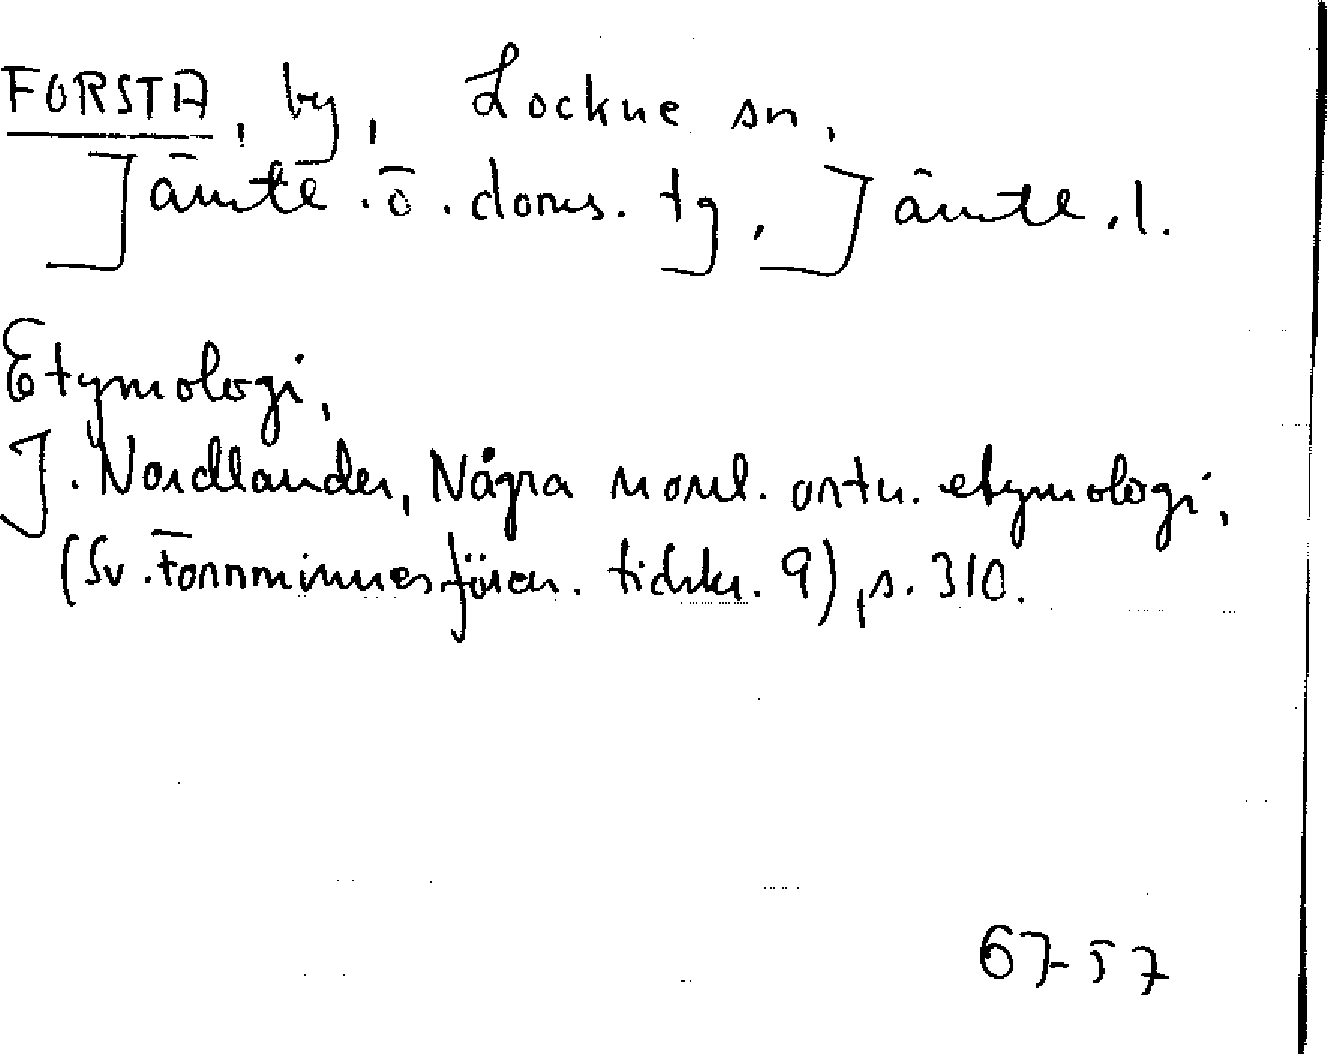 FORSTA, by, Lockne sn,
Jämte.ö.doms.tg, Jämtl.l.
Etymologi,
J. Nordlander, Några norrl. ortn. etymologi,
(Sv. Fornminnesfören. tidskr. 9), s. 310.
67-57